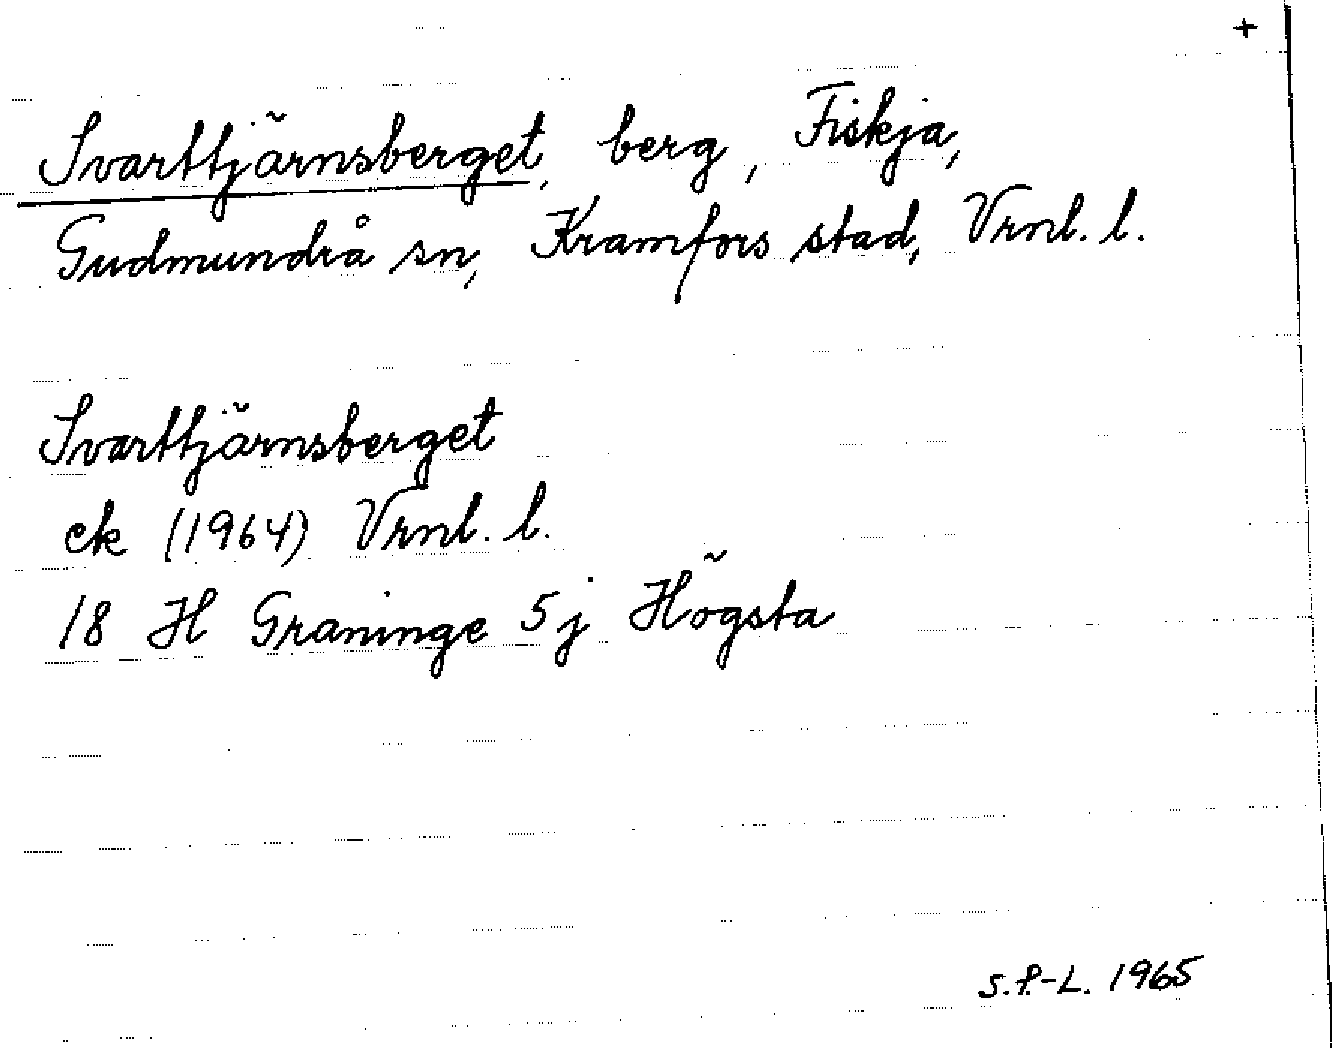 +
Svarttjärnsberget, berg, Fiskja,
Gudmundrå sn, Kramfors stad, Vrnl. l.
Svarttjärnsberget
ek (1964) Vrnl. l.
18 H Graninge 5j Högsta
S.P.-L. 1965